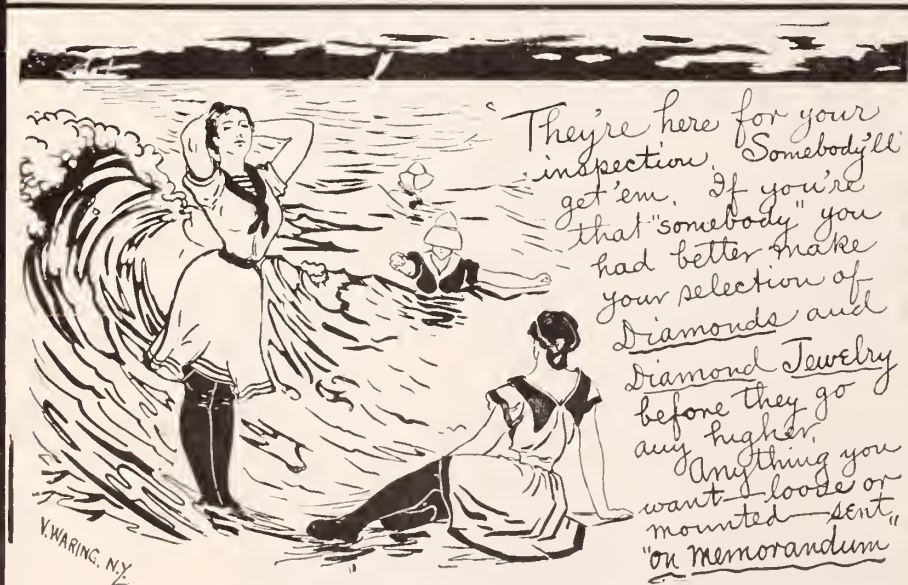 "They're here for your
inspection. Somebody'll
get 'em. If you're
that "somebody" you
had better make
your selection of
Diamonds and
Diamond Jewelry
before they go
any higher.
Anything you
want—loose or
mounted—sent
"on memorandum"
V. WARING. N.Y.